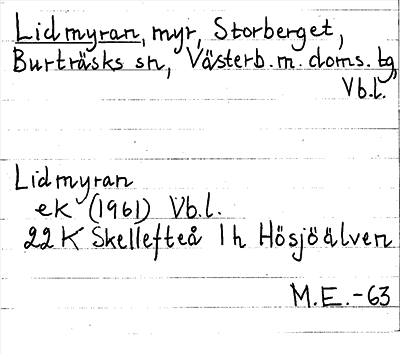 Lidmyran, myr, Storberget,
Burträsks sn, Västerb. m. doms. tg,
Vb.l.
Lidmyran
ek (1961) Vb.l.
22 K Skellefteå 1h Hösjöälven
M.E.-63